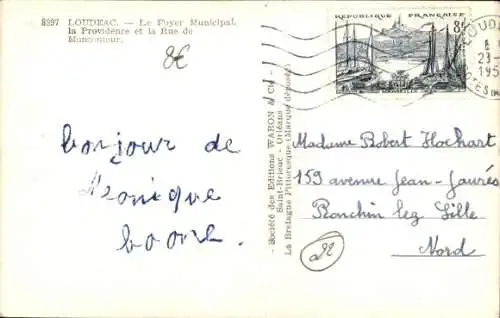 8297 LOUDEAC. — Le Foyer Municipal,
la Providence et la Rue de
Moncontour.
8€
bonjour de
Monique
- Société des Editions WARON & Cie -
Saint-Brieuc - Orléans
La Bretagne Pittoresque (Marque déposée)
REPUBLIQUE FRANÇAISE
8f
MARSEILLE
LOUDE
23-
195
Madame Robert Hochart
159 avenue Jean-Jaurès
Ronchin lez Lille
Nord
22